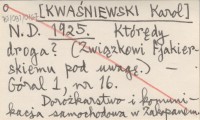 [KWAŚNIEWSKI Karol]
N.D. 1925. Którędy
droga? (Związkowi Fjakier-
skiemu pod uwagę.) —
Góral 1, nr 16.
Dorożkarstwo i komuni-
kacja samochodowa w Zakopanem.